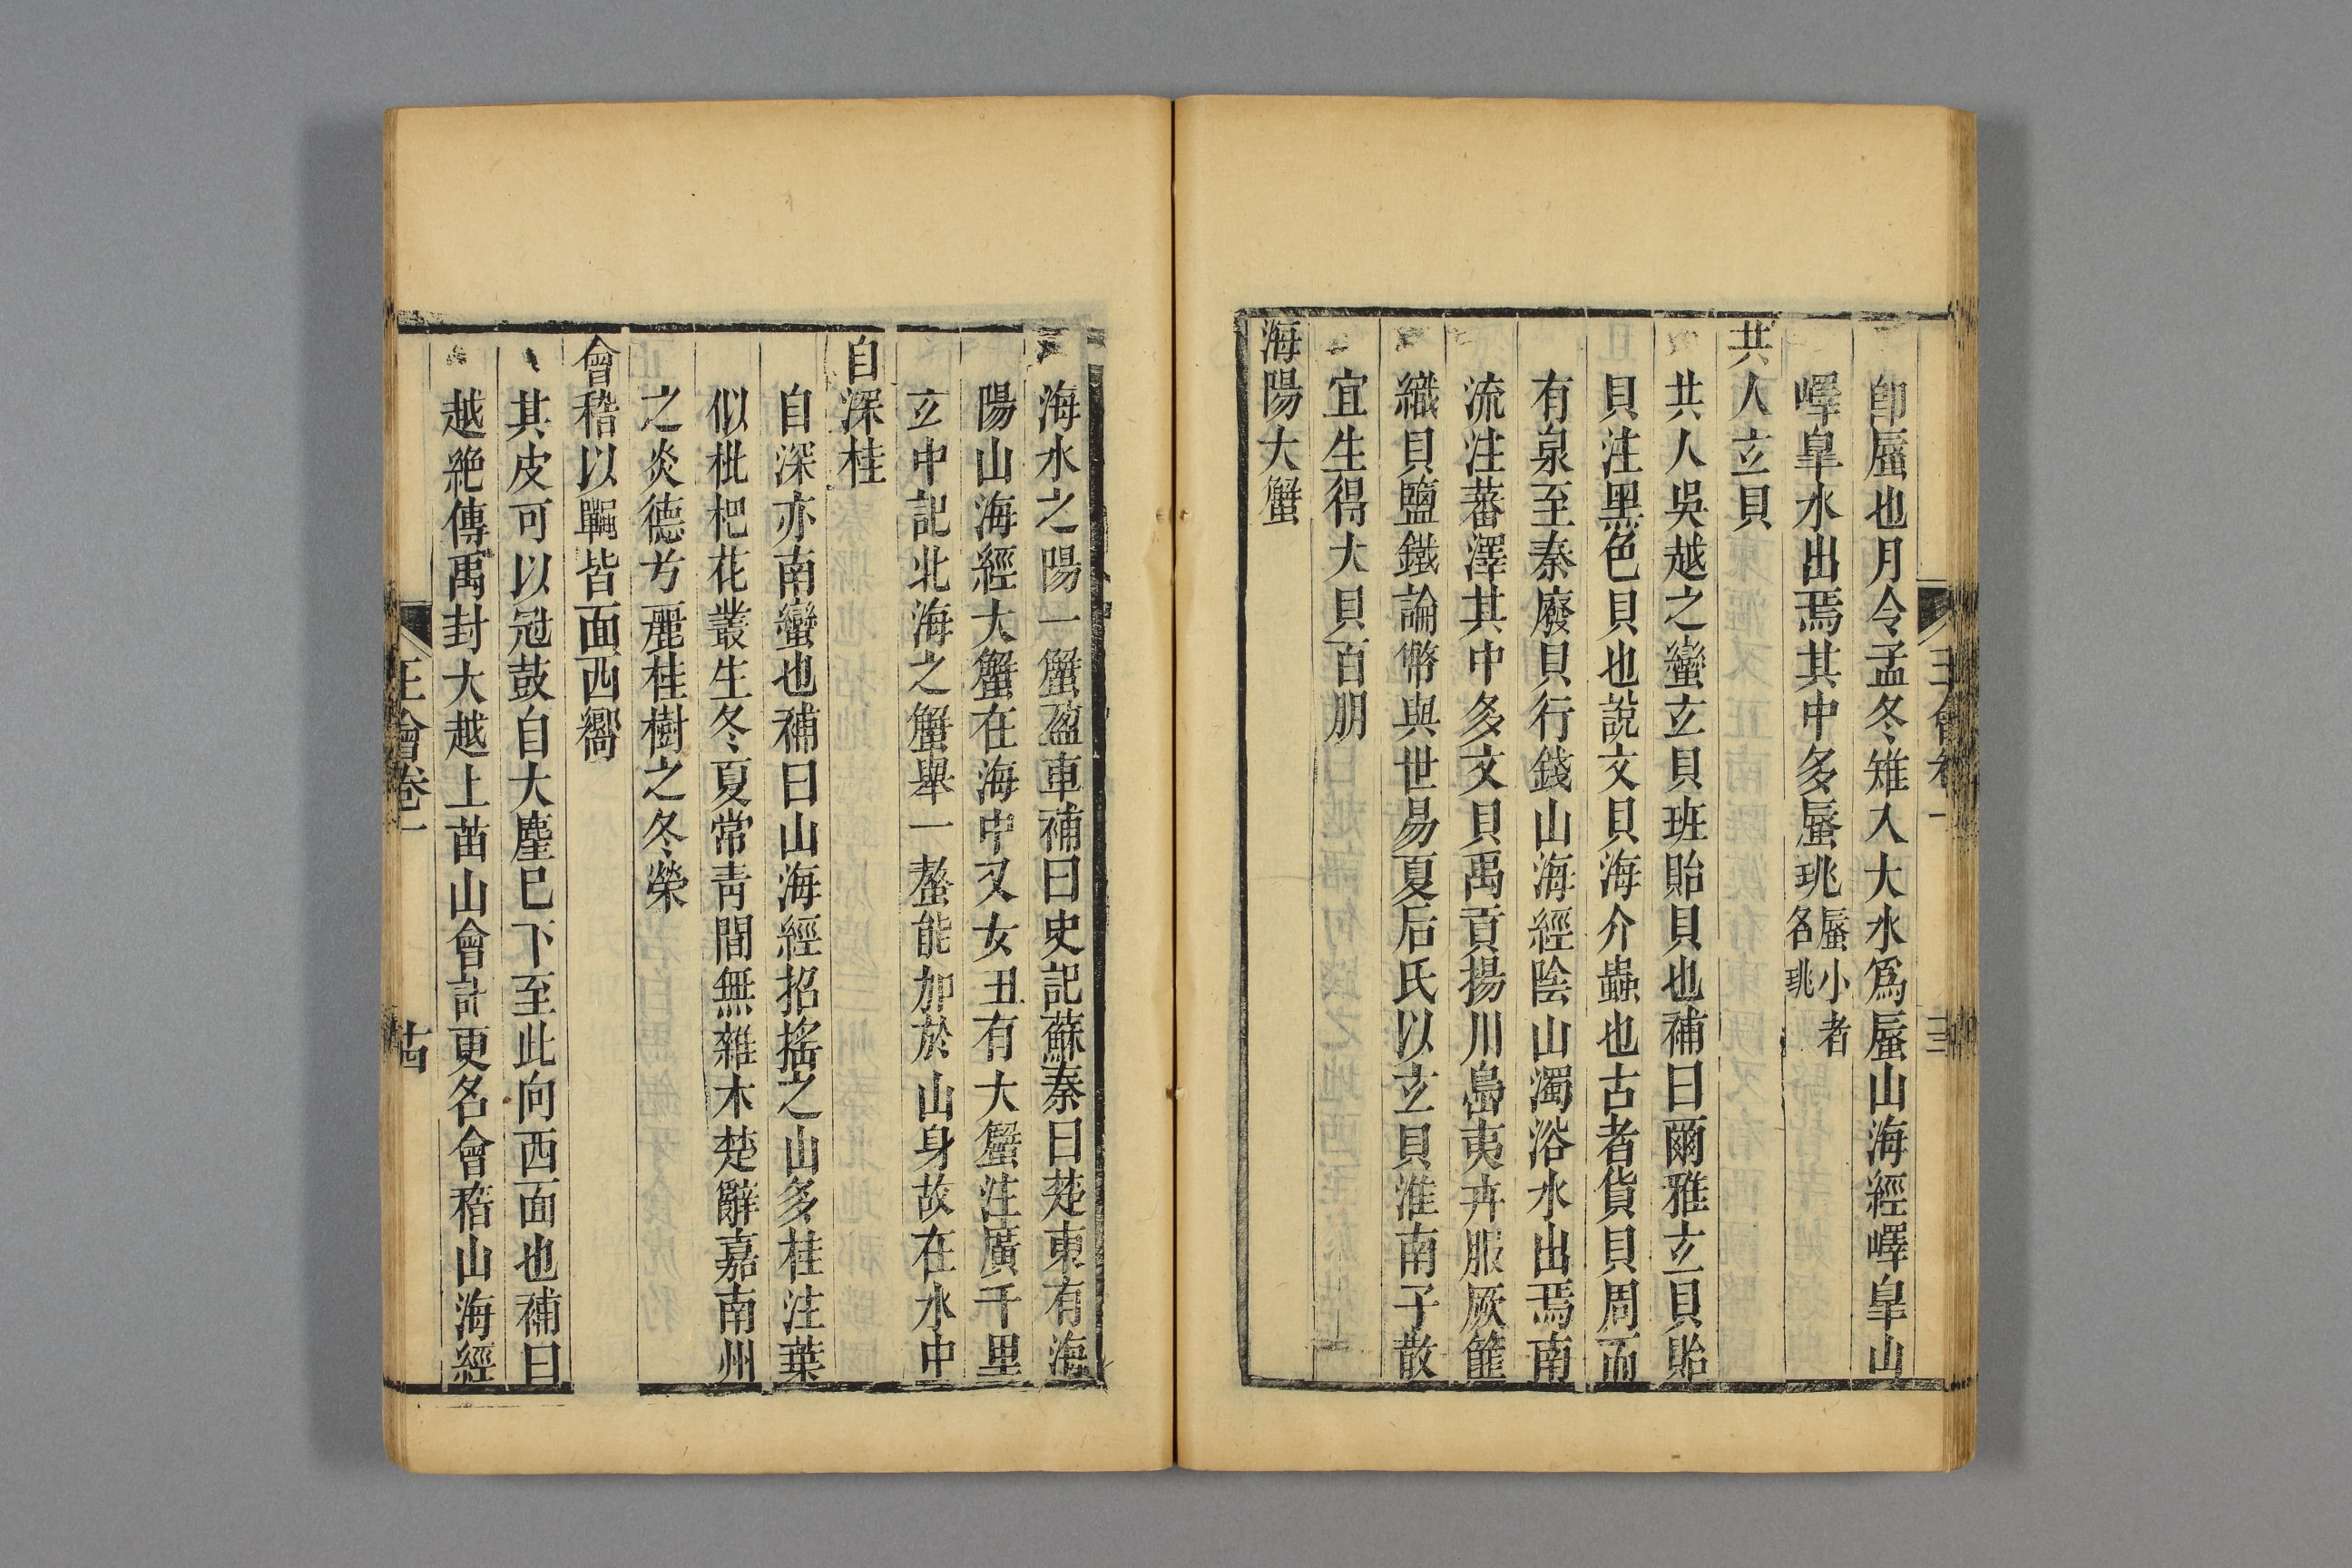 卽蜃也月令孟冬雉入大水爲蜃山海經嶧臯山
嶧臯水出焉其中多蜃珧蜃小者名珧
共人玄貝
共人吳越之蠻玄貝班貽貝也補曰爾雅玄貝貽
貝注黑色貝也說文貝海介蟲也古者貨貝周而
有泉至秦廢貝行錢山海經陰山濁浴水出焉南
流注蕃澤其中多文貝禹貢揚川島夷卉服厥篚
織貝鹽鐵論幣與世易夏后氏以玄貝淮南子散
宜生得大貝百朋
海陽大蟹
海水之陽一蟹盈車補曰史記蘇秦曰楚東有海
陽山海經大蟹在海中又女丑有大蟹注廣千里
玄中記北海之蟹舉一螯能加於山身故在水中
自深桂
自深亦南蠻也補曰山海經招搖之山多桂注葉
似枇杷花叢生冬夏常靑間無雜木楚辭嘉南州
之炎德兮麗桂樹之冬榮
會稽以䵷皆面西嚮
其皮可以冠鼓自大塵巳下至此向西面也補曰
越絶傳禹封大越上苗山會計更名會稽山海經
王會卷一
十四